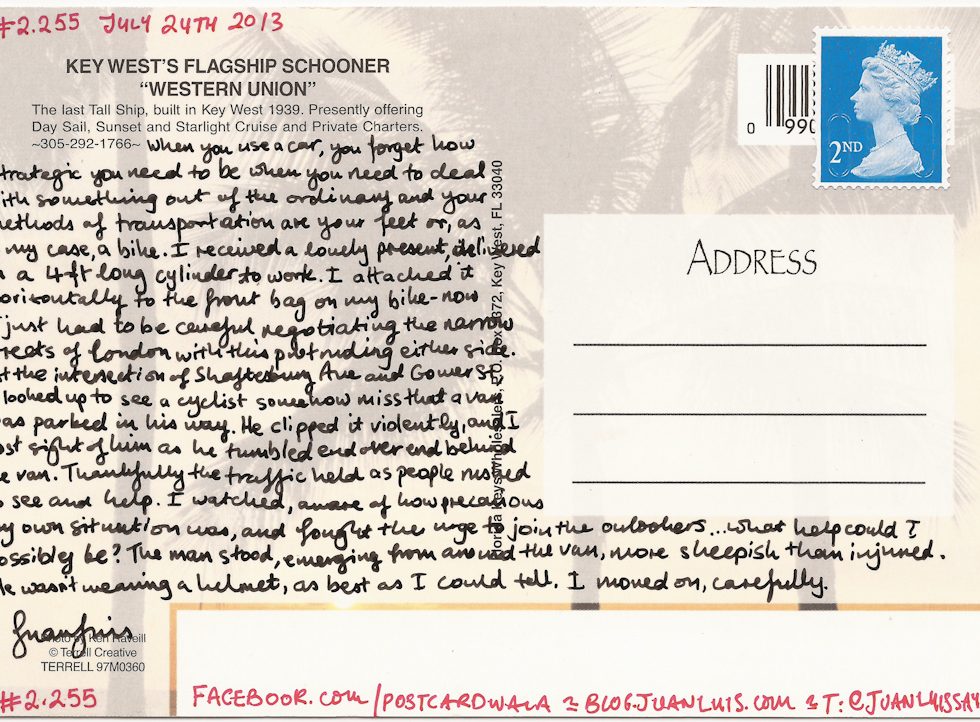 #2.255 JULY 24TH 2013
KEY WEST'S FLAGSHIP SCHOONER
"WESTERN UNION"
The last Tall Ship, built in Key West 1939. Presently offering
Day Sail, Sunset and Starlight Cruise and Private Charters.
~305-292-1766~ When you use a car, you forget how
trategic you need to be when you need to deal
ith something out of the ordinary and your
ethods of transportation are your feet or, as
my case, a bike. I received a lovely present, delivered
a 4ft long cylinder to work. I attached it
orizontally to the front bag on my bike-now
just had to be careful negotiating the narrow
reets of London with this protruding either side.
t the intersection of Shaftesbury Ave and Gower St
looked up to see a cyclist somehow miss that a van
as parked in his way. He clipped it violently, and I
ost sight of him as he tumbled end over end behind
e van. Thankfully the traffic held as people rushed
o see and help. I watched, aware of how precarious
y own situation was, and fought the urge to join the onlookers...what help could I
ossibly be? The man stood, emerging from around the van, more sheepish than injured.
He wasn't wearing a helmet, as best as I could tell. I moved on, carefully.
Juanluis
Photo by Ken Raveill
© Terrell Creative
TERRELL 97M0360
#2.255
FACEBOOK.COM/POSTCARDWALA = BLOG.JUANLUIS.COM = T: @JUANLUISSAY
Key West, FL 33040
0 990
2ND
ADDRESS